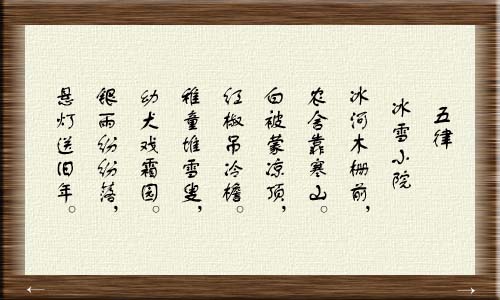 五律
冰雪小院
冰河木栅前，
农舍靠寒山。
白被蒙凉顶，
红椒吊冷檐。
稚童堆雪叟，
幼犬戏霜园。
银雨纷纷落，
悬灯送旧年。